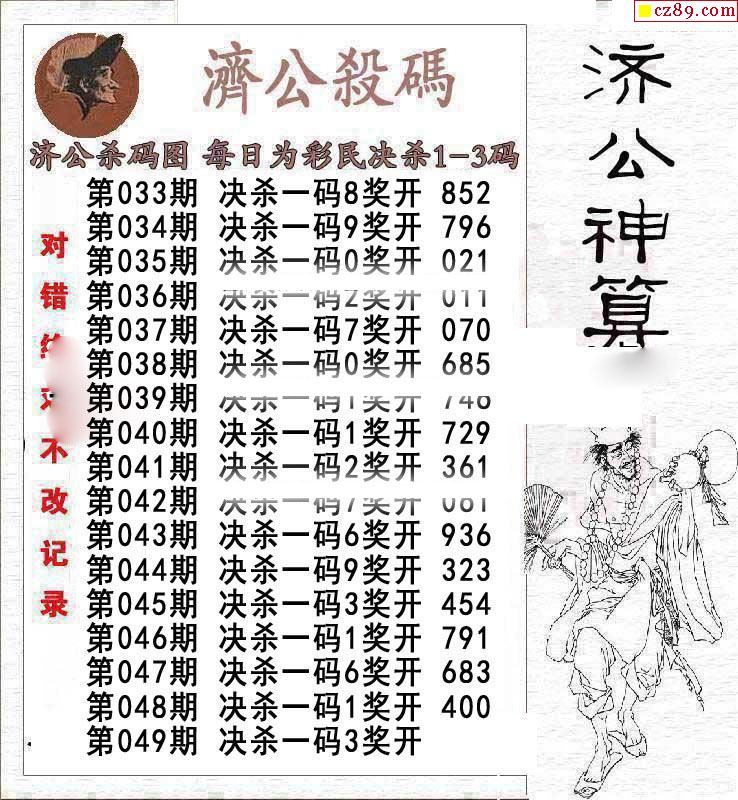 cz89.com
濟公殺碼
济公杀码图 每日为彩民决杀1-3码
第033期 决杀一码8奖开 852
第034期 决杀一码9奖开 796
第035期 决杀一码0奖开 021
第036期 决杀一码2奖开 011
第037期 决杀一码7奖开 070
第038期 决杀一码0奖开 685
第039期 决杀一码1奖开
第040期 决杀一码1奖开 729
第041期 决杀一码2奖开 361
第042期 决杀一码7奖开
第043期 决杀一码6奖开 936
第044期 决杀一码9奖开 323
第045期 决杀一码3奖开 454
第046期 决杀一码1奖开 791
第047期 决杀一码6奖开 683
第048期 决杀一码1奖开 400
第049期 决杀一码3奖开
对错 不改记录
济公神算